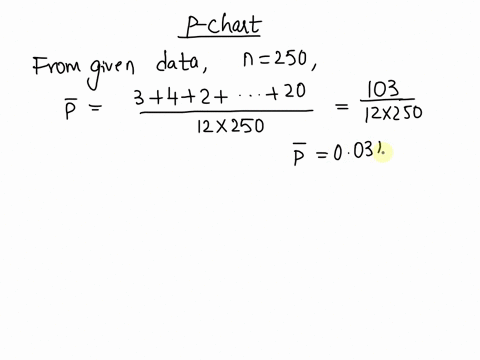 P-chart
From given data, n = 250,
P̅ = (3+4+2+ ··· +20)/(12×250) = 103/(12×250)
P̅ = 0.03